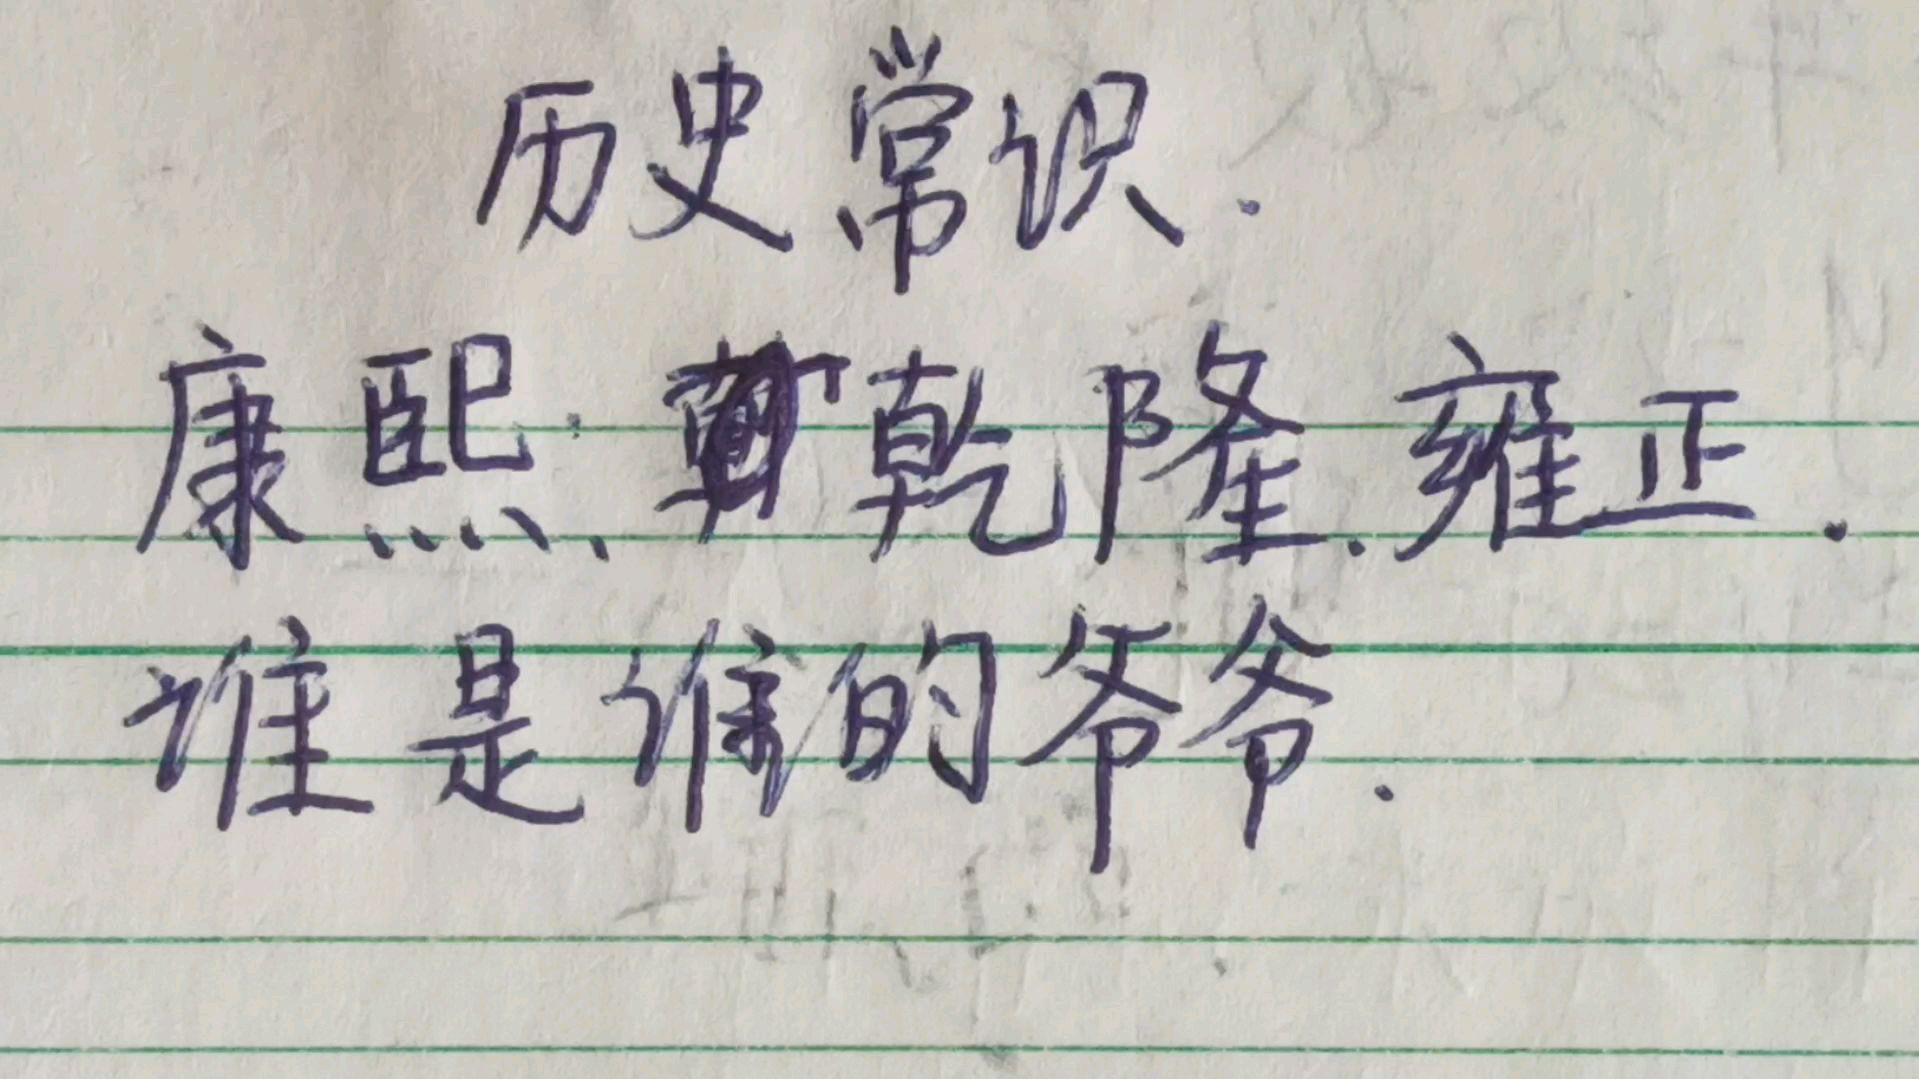 历史常识.
康熙、乾隆.雍正.
谁是谁的爷爷.